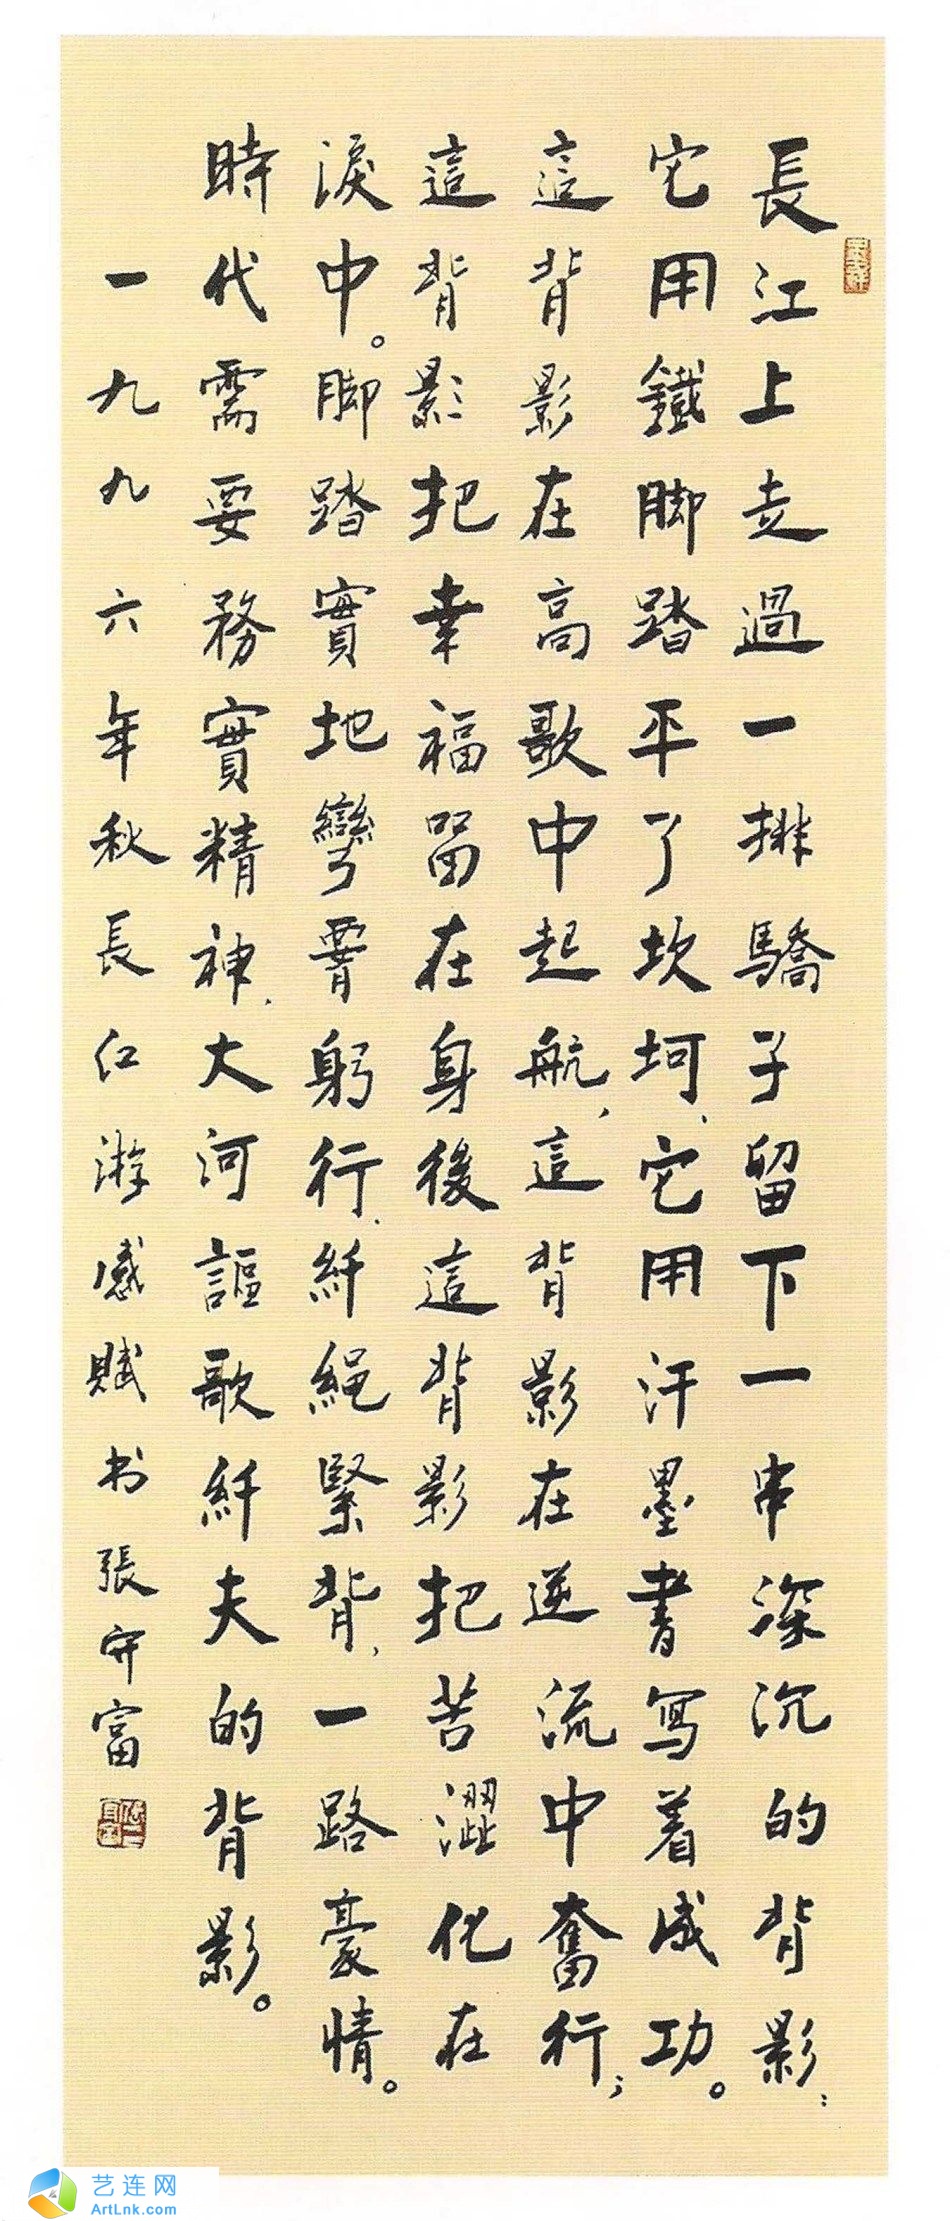 長江上走過一排驕子留下一串深沉的背影：
它用鐵脚踏平了坎坷、它用汗墨書写着成功。
這背影在高歌中起航，這背影在逆流中奮行；
這背影把幸福留在身後這背影把苦澀化在
淚中。脚踏實地彎腰躬行、纤繩緊背，一路豪情。
時代需要務實精神、大河謳歌纤夫的背影。
一九九六年秋長江游感賦书張守富
艺连网
ArtLnk.com